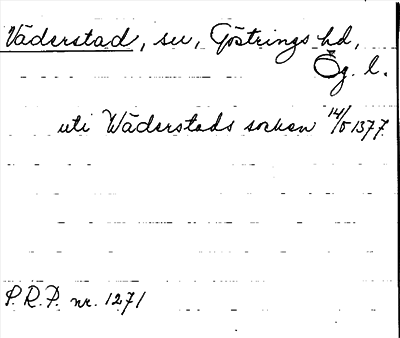 Väderstad, sn, Göstrings hd,
Ög. l.
uti Wäderstads socken 14/5 1377.
P.R.P. nr. 1271